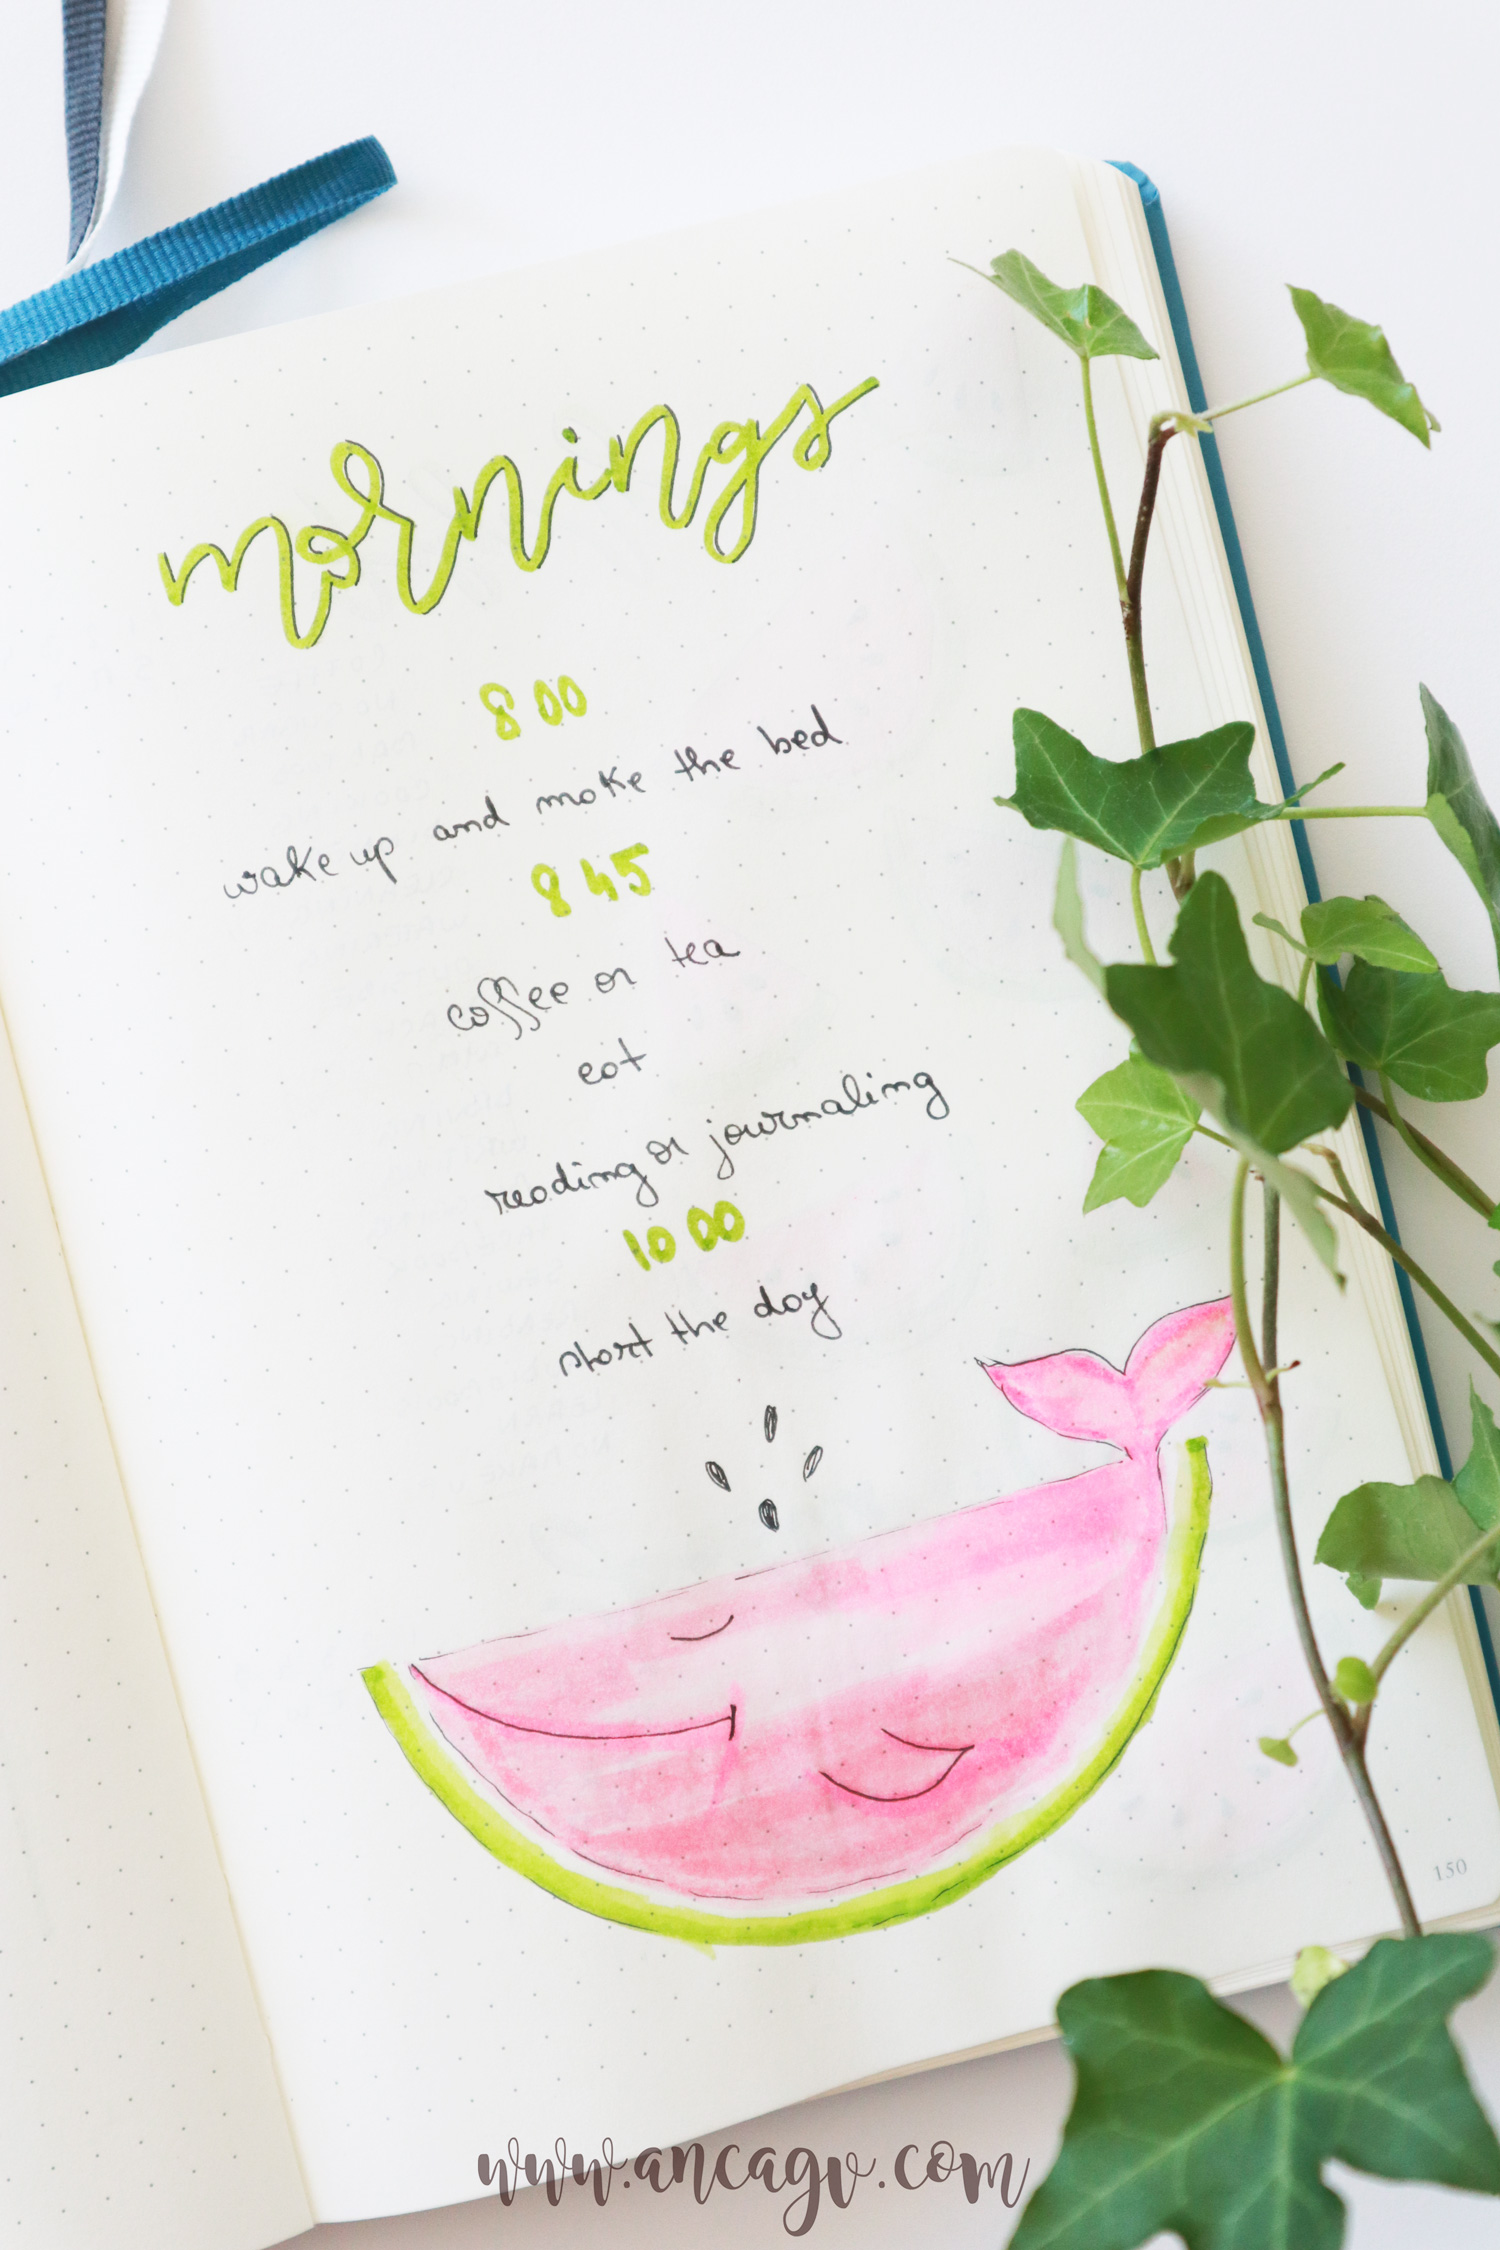 mornings
8 00
wake up and make the bed
8 45
coffee or tea
eat
reading or journaling
10 00
start the day
150
www.ancagv.com